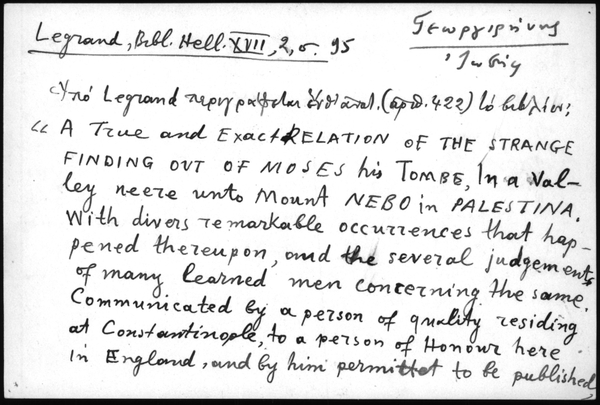 Legrand, Bibl. Hell. XVII, 2, σ. 95
Γεωργιρήνης
Ἰωσὴφ
Ὑπό Legrand περιγράφεται ἐνθ' ἀνωτ. (ἀριθ. 422) τό βιβλίον:
« A True and Exact RELATION OF THE STRANGE
FINDING OUT OF MOSES his TOMBE, In a Val-
ley neere unto Mount NEBO in PALESTINA.
With divers remarkable occurrences that hap-
pened thereupon, and the several judgements
of many learned men concerning the same.
Communicated by a person of quality residing
at Constantinople, to a person of Honour here
in England, and by him permitted to be published,